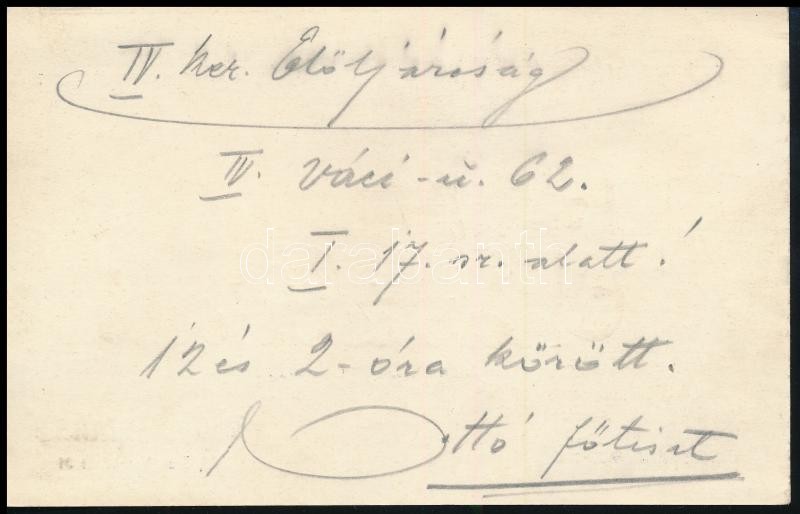 IV. ker. Elöljáróság
IV. Váci-u. 62.
I. 17. sz. alatt!
12 és 2-óra körött.
Ottó főtiszt
darabanth